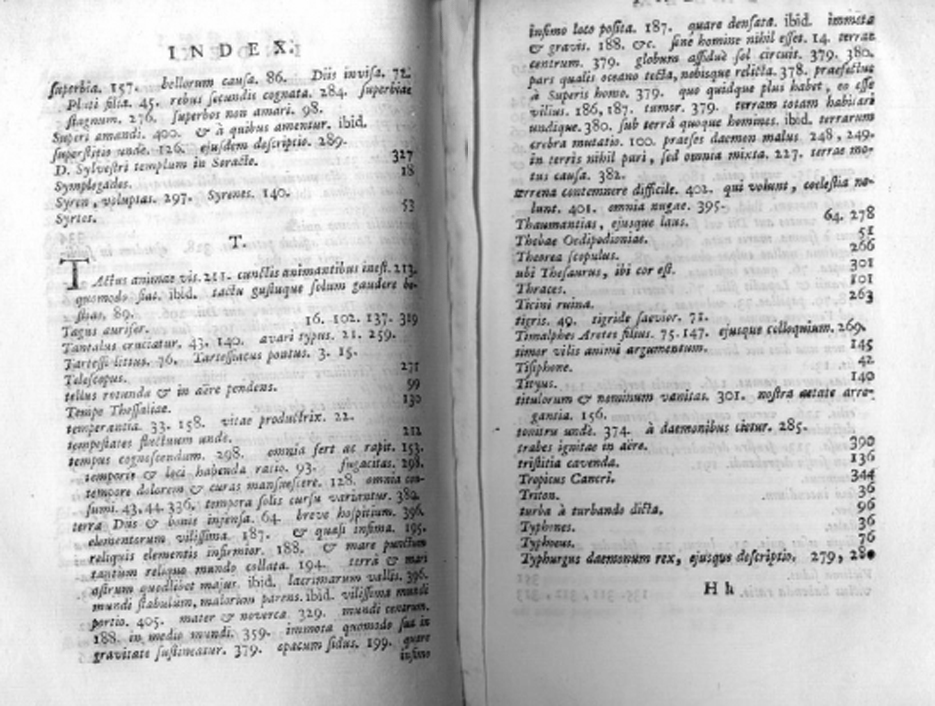 INDEX.
superbia. 157. bellorum causa. 86. Diis invisa. 72.
Pluti filia. 45. rebus secundis cognata. 284. superbiae
stagnum. 276. superbos non amari. 98.
Superi amandi. 400. & à quibus amentur. ibid.
superstitio unde. 126. ejusdem descriptio. 289.
D. Sylvestri templum in Soracte. 327
Symplegades. 18
Syren, voluptas. 297. Syrenes. 140.
Syrtes. 53
T.
TActus animae vis. 211. cunctis animantibus inest. 213.
quomodo fiat. ibid. tactu gustuque solum gaudere be-
stias. 89.
Tagus aurifer. 16. 102. 137. 319
Tantalus cruciatur. 43. 140. avari typus. 21. 259.
Tartessi littus. 76. Tartessiacus pontus. 3. 15.
Telescopus. 271
tellus rotunda & in aëre pendens. 59
Tempe Thessaliae. 130
temperantia. 33. 158. vitae productrix. 22.
tempestates fluctuum unde. 212
tempus cognoscendum. 298. omnia fert ac rapit. 153.
temporis & loci habenda ratio. 93. fugacitas. 298.
tempore dolorem & curas mansuescere. 128. omnia con-
sumi. 43. 44. 336. tempora solis cursu variantur. 380.
terra Diis & bonis infensa. 64. breve hospitium. 396.
elementorum vilissima. 187. & quasi infima. 195.
reliquis elementis infirmior. 188. & mare punctum
tantum reliquo mundo collata. 194. terrâ & mari
astrum quodlibet majus. ibid. lacrimarum vallis. 396.
mundi stabulum, malorum parens. ibid. vilissima mundi
portio. 405. mater & noverca. 329. mundi centrum.
188. in medio mundi. 359. immota quomodo sua in
gravitate sustineatur. 379. opacum sidus. 199. quare
infimo
infimo loco posita. 187. quare densata. ibid. immota
& gravis. 188. &c. sine homine nihil esset. 14. terrae
centrum. 379. globum assiduè sol circuit. 379. 380.
pars qualis oceano tecta, nobisque relicta. 378. praefectus
à Superis homo. 379. quo quidque plus habet, eo esse
vilius. 186, 187. tumor. 379. terram totam habitari
undique. 380. sub terrâ quoque homines. ibid. terrarum
crebra mutatio. 100. praeses daemen malus. 248, 249.
in terris nihil puri, sed omnia mixta. 227. terrae mo-
tus causa. 382.
terrena contemnere difficile. 402. qui volunt, coelestia no-
lunt. 401. omnia nugae. 395.
Thaumantias, ejusque laus. 64. 278
Thebae Oedipodioniae. 51
Theorea scopulus. 266
ubi Thesaurus, ibi cor est. 301
Thraces. 101
Ticini ruina. 263
tigris. 49. tigride saevior. 71.
Timalphes Aretes filius. 75. 147. ejusque colloquium. 269.
timor vilis animi argumentum. 145
Tisiphone. 42
Tityus. 140
titulorum & nominum vanitas. 301. nostra aetate arro-
gantia. 156.
tonitru undè. 374. à daemonibus cietur. 285.
trabes ignitae in aëre. 390
tristitia cavenda. 136
Tropicus Cancri. 344
Triton. 36
turba à turbando dicta. 96
Typhones. 36
Typhoeus. 76
Typhurgus daemonum rex, ejusque descriptio. 279, 280
H h